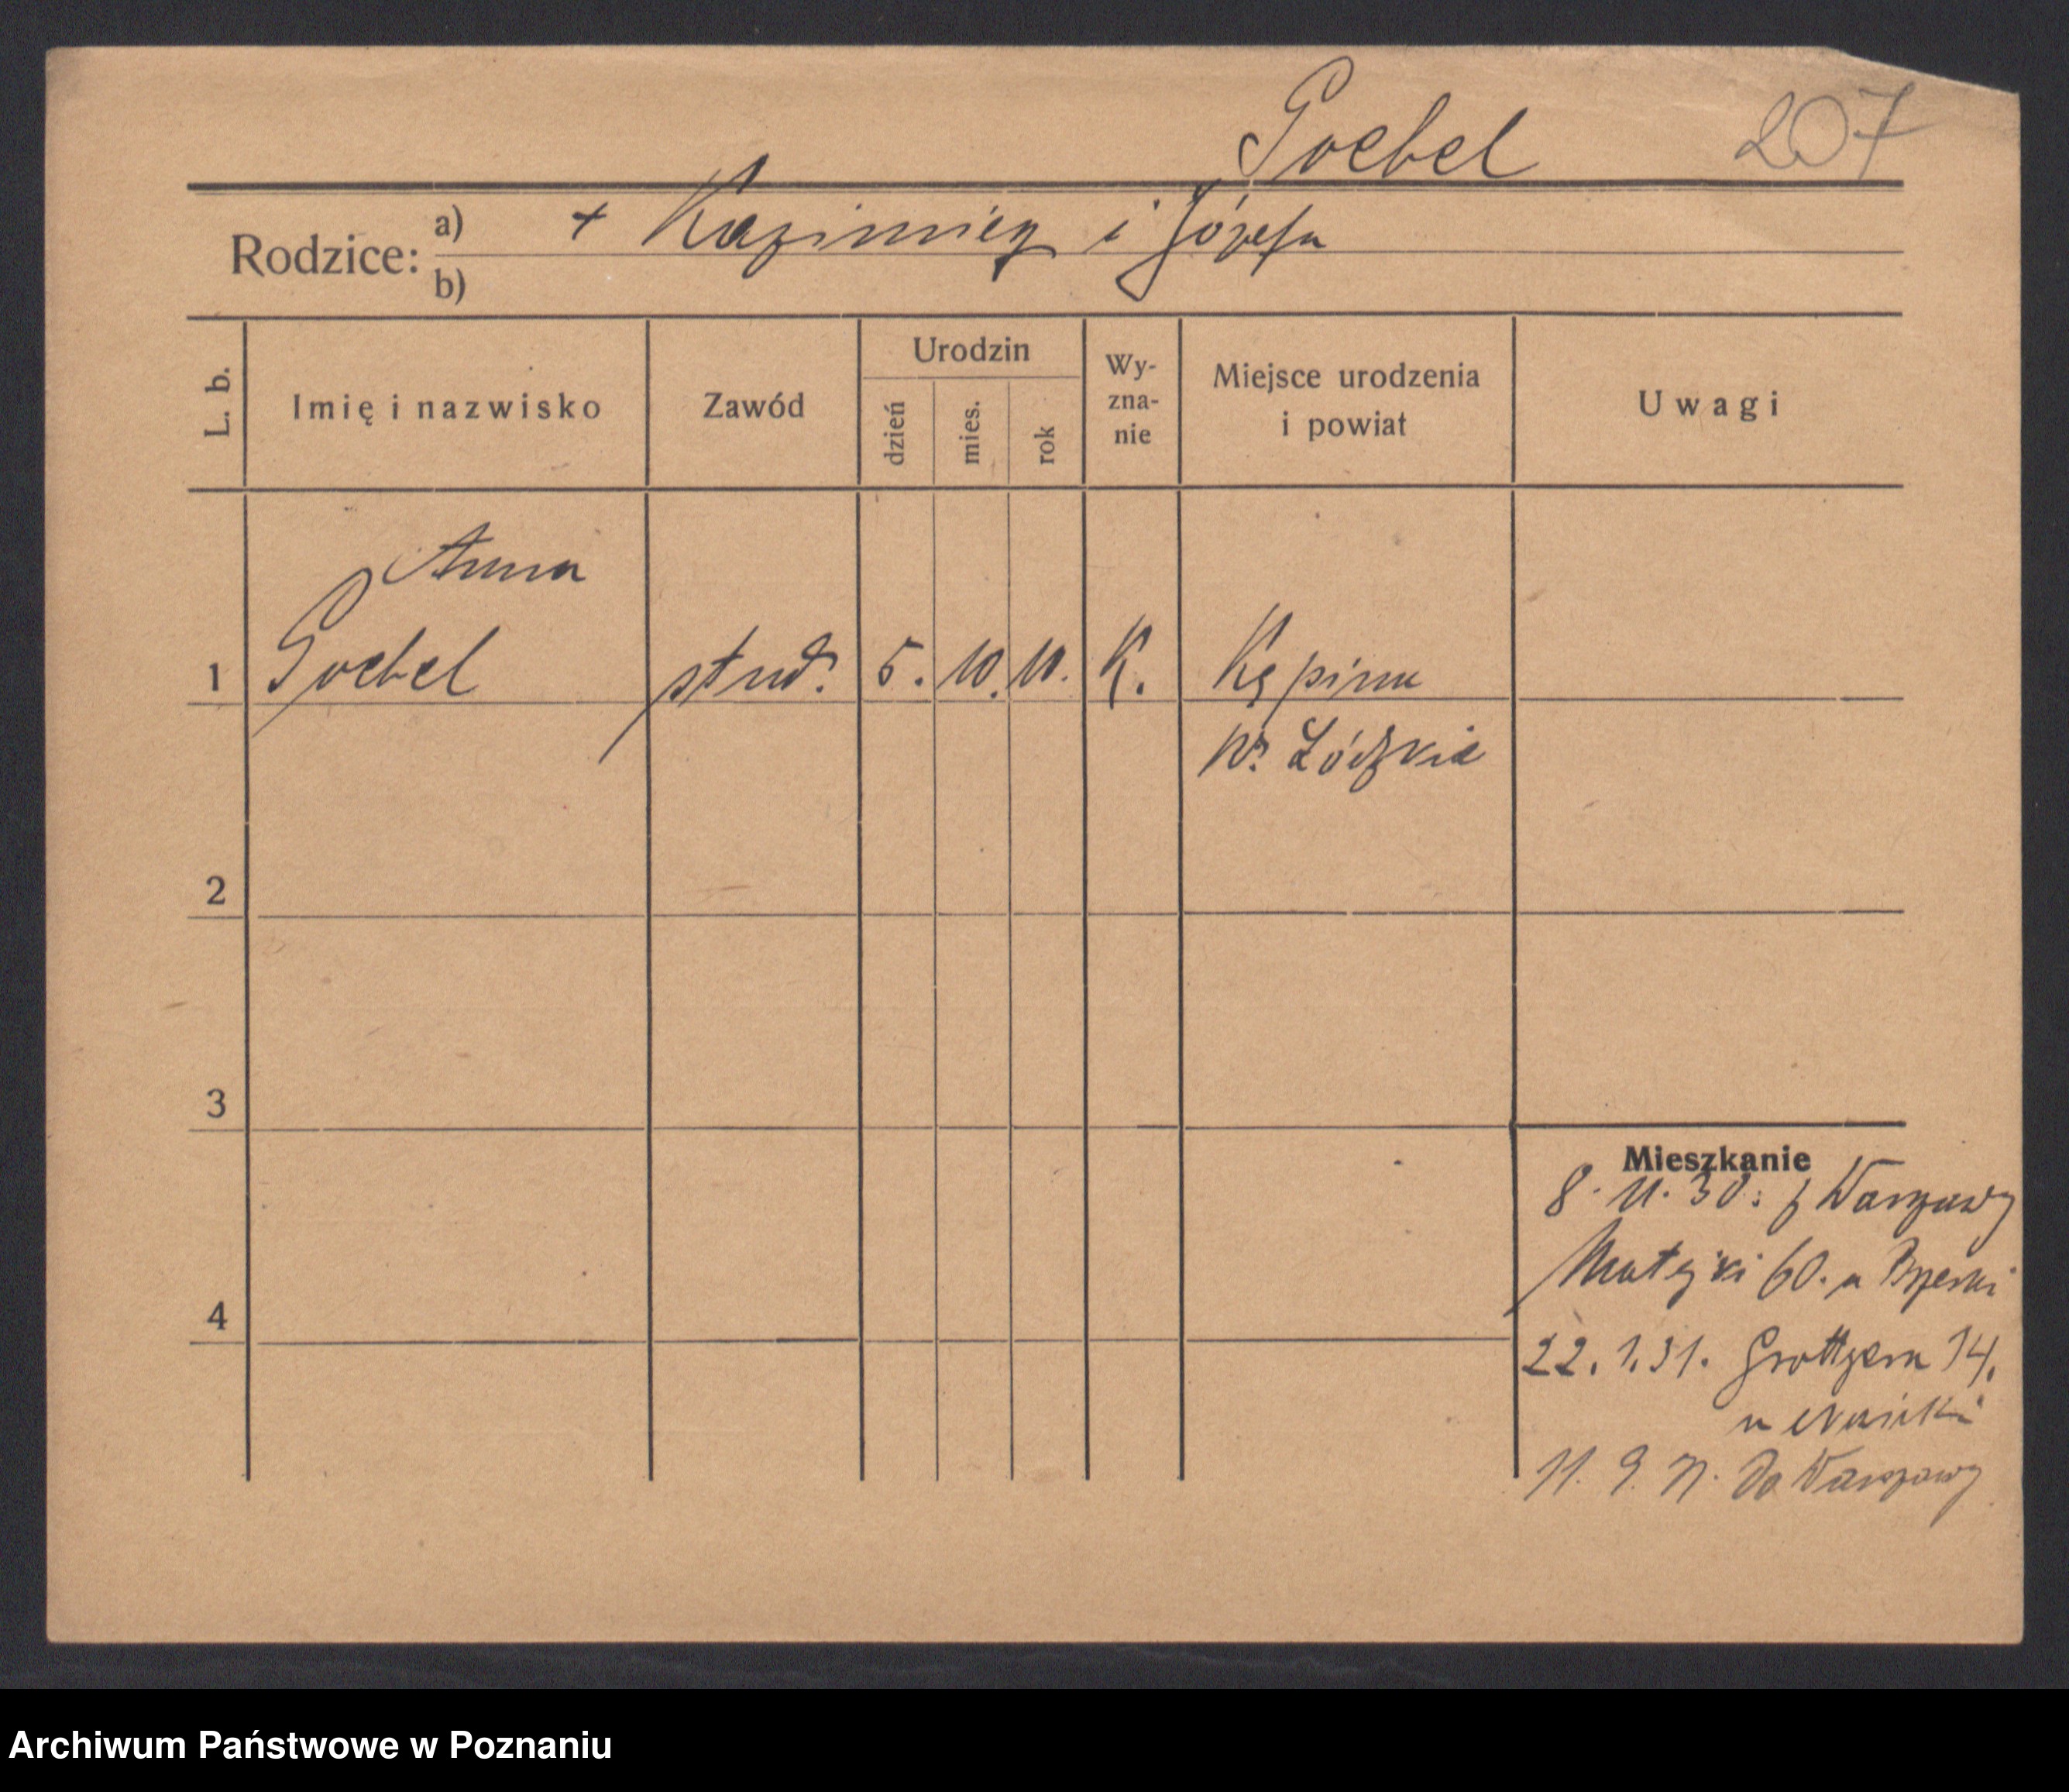 Goebel 207
Rodzice: a) + Kazimierz i Józefa
b)
L. b. Imię i nazwisko Zawód Urodzin dzień mies. rok Wy-zna-nie Miejsce urodzenia i powiat Uwagi
Anna
1 Goebel stud. 5. 10. 10. K. Kępina
w. Łódzkie
2
3
4
Mieszkanie
8. 11. 30. z Warszawy
Matejki 60. u
22. 1. 31. Grottgera 14.
u
11. 9. 31. do Warszawy
Archiwum Państwowe w Poznaniu